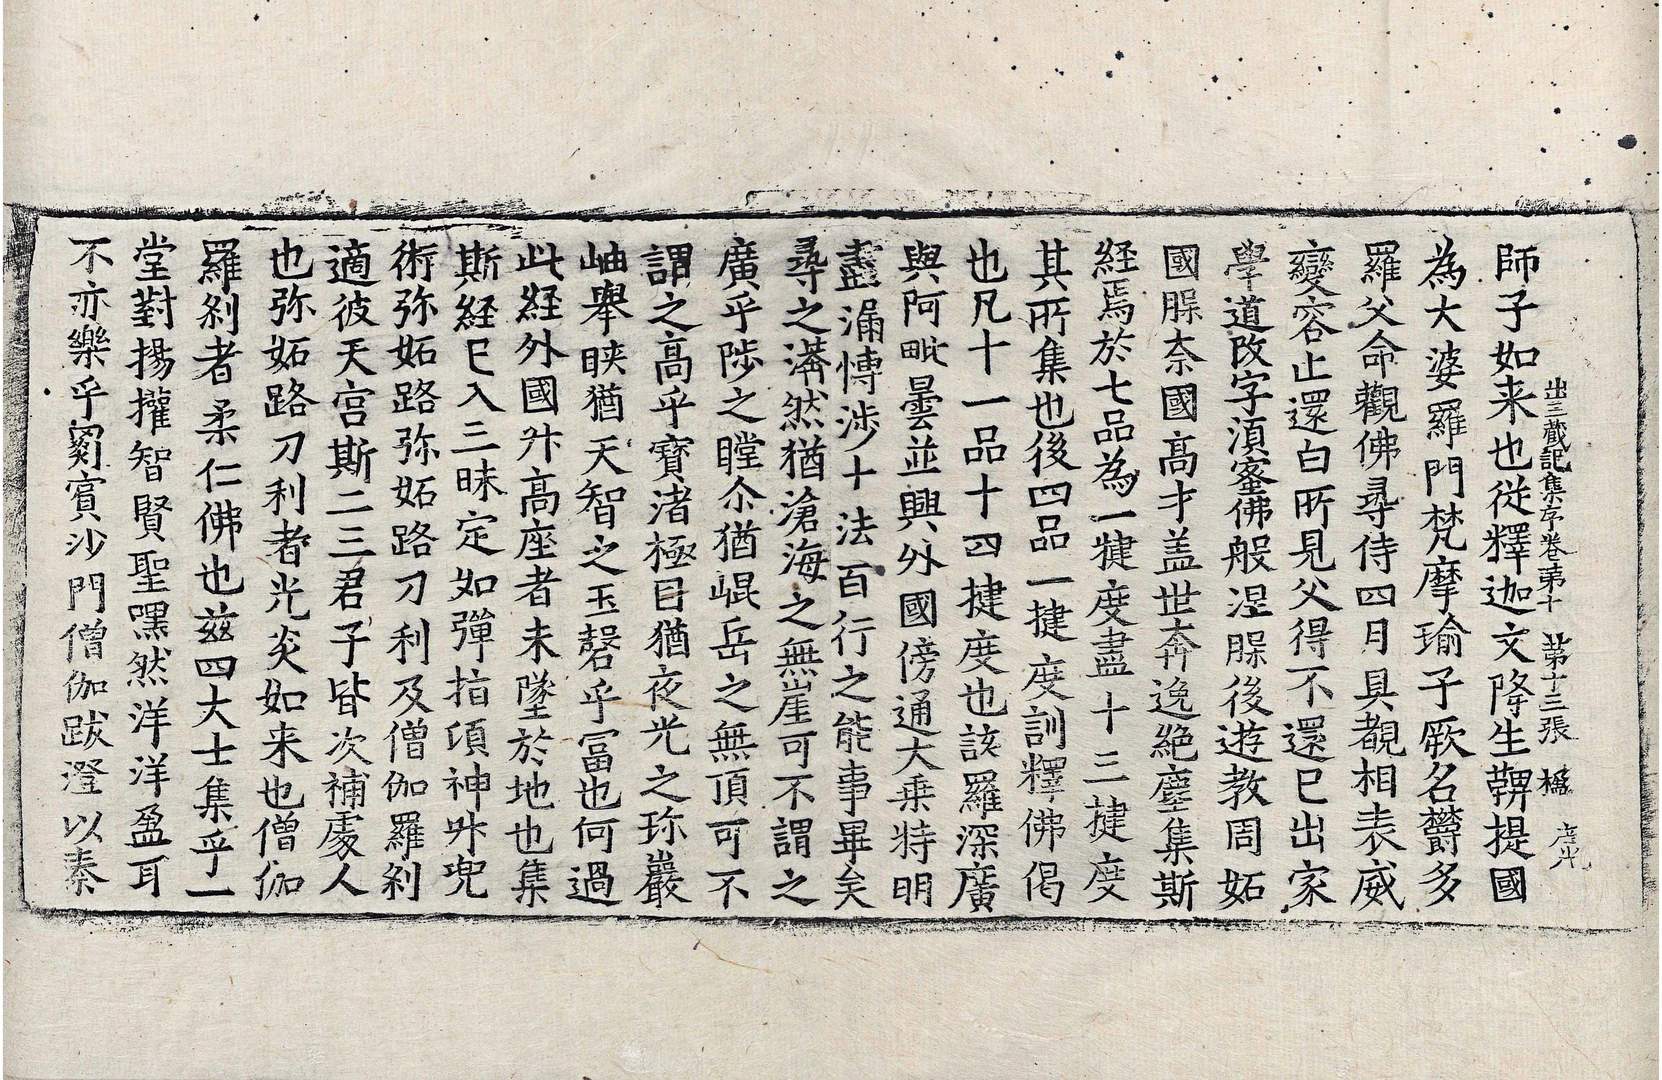 出三蔵記集序卷苐十 苐十三張 楹
師子如来也從釋迦文降生鞞提國
為大婆羅門梵摩瑜子厥名欝多
羅父命觀佛尋侍四月具覩相表威
變容止還白所見父得不還已出家
學道改字湏蜜佛般涅腂後遊教周妬
國腂柰國高才盖世奔逸絕塵集斯
経焉於七品為一揵度盡十三揵度
其所集也後四品一揵度訓釋佛偈
也凡十一品十四揵度也該羅深廣
與阿毗曇並興外國傍通大乗特明
盡漏愽渉十法百行之能事畢矣
尋之漭然猶滄海之無崖可不謂之
廣乎陟之瞠尒猶崐岳之無頂可不
謂之高乎寶渚極目猶夜光之珎巖
岫舉眹猶天智之玉磬乎冨也何過
此経外國升高座者未墜於地也集
斯経已入三昧定如彈指頃神升兜
術弥妬路弥妬路刀利及僧伽羅刹
適彼天宮斯二三君子皆次補處人
也弥妬路刀利者光炎如来也僧伽
羅刹者柔仁佛也兹四大士集乎一
堂對揚㩲智賢聖嘿然洋洋盈耳
不亦樂乎罽賓沙門僧伽跋澄以秦